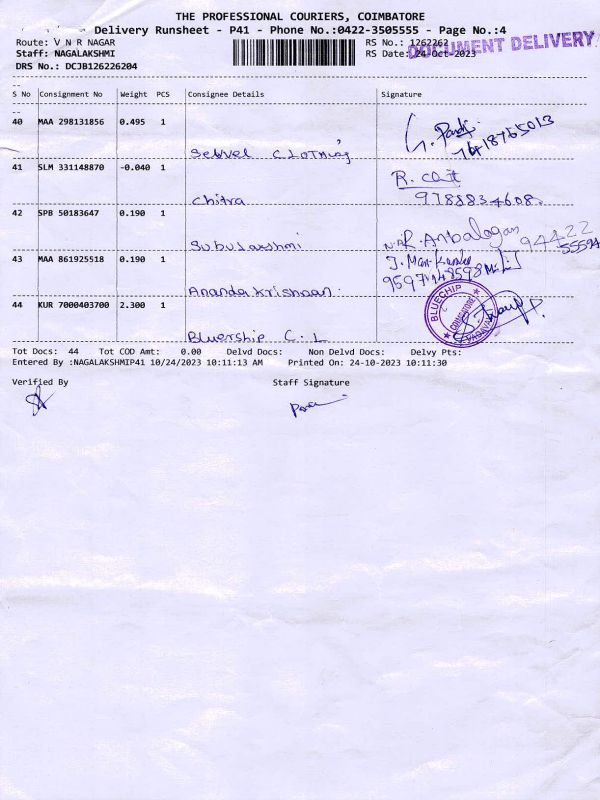 THE PROFESSIONAL COURIERS, COIMBATORE
Delivery Runsheet - P41 - Phone No.:0422-3505555 - Page No.:4
Route: V N R NAGAR
RS No.: 1262262
DOCUMENT DELIVERY
Staff: NAGALAKSHMI
RS Date: 24-Oct-2023
DRS No.: DCJB126226204
S No Consignment No Weight PCS Consignee Details Signature
40 MAA 298131856 0.495 1
Selvel CLOTHing
41 SLM 331148870 -0.040 1
R.
9788834608
Chitra
42 SPB 50183647 0.190 1
R. Anbalagan 94422
55594
Subulaxshmi
43 MAA 861925518 0.190 1
Anandakrishnan.
44 KUR 7000403700 2.300 1
BLUECHIP
COIMBATORE
Bluership C.L
Tot Docs: 44 Tot COD Amt: 0.00 Delvd Docs: Non Delvd Docs: Delvy Pts:
Entered By :NAGALAKSHMIP41 10/24/2023 10:11:13 AM Printed On: 24-10-2023 10:11:30
Verified By Staff Signature